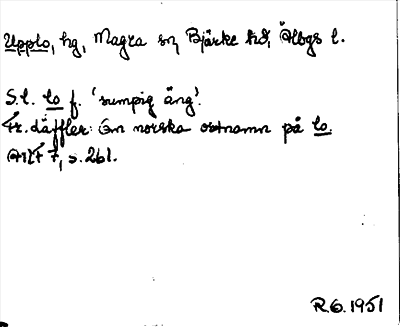 Upplo, hg, Magra sn, Bjärke hd, Älvsbgs l.
S.l. lo f. 'sumpig äng'.
Fr. däffler: Om norska ortnamn på lo.
ANF 7, s. 261.
R.O. 1951